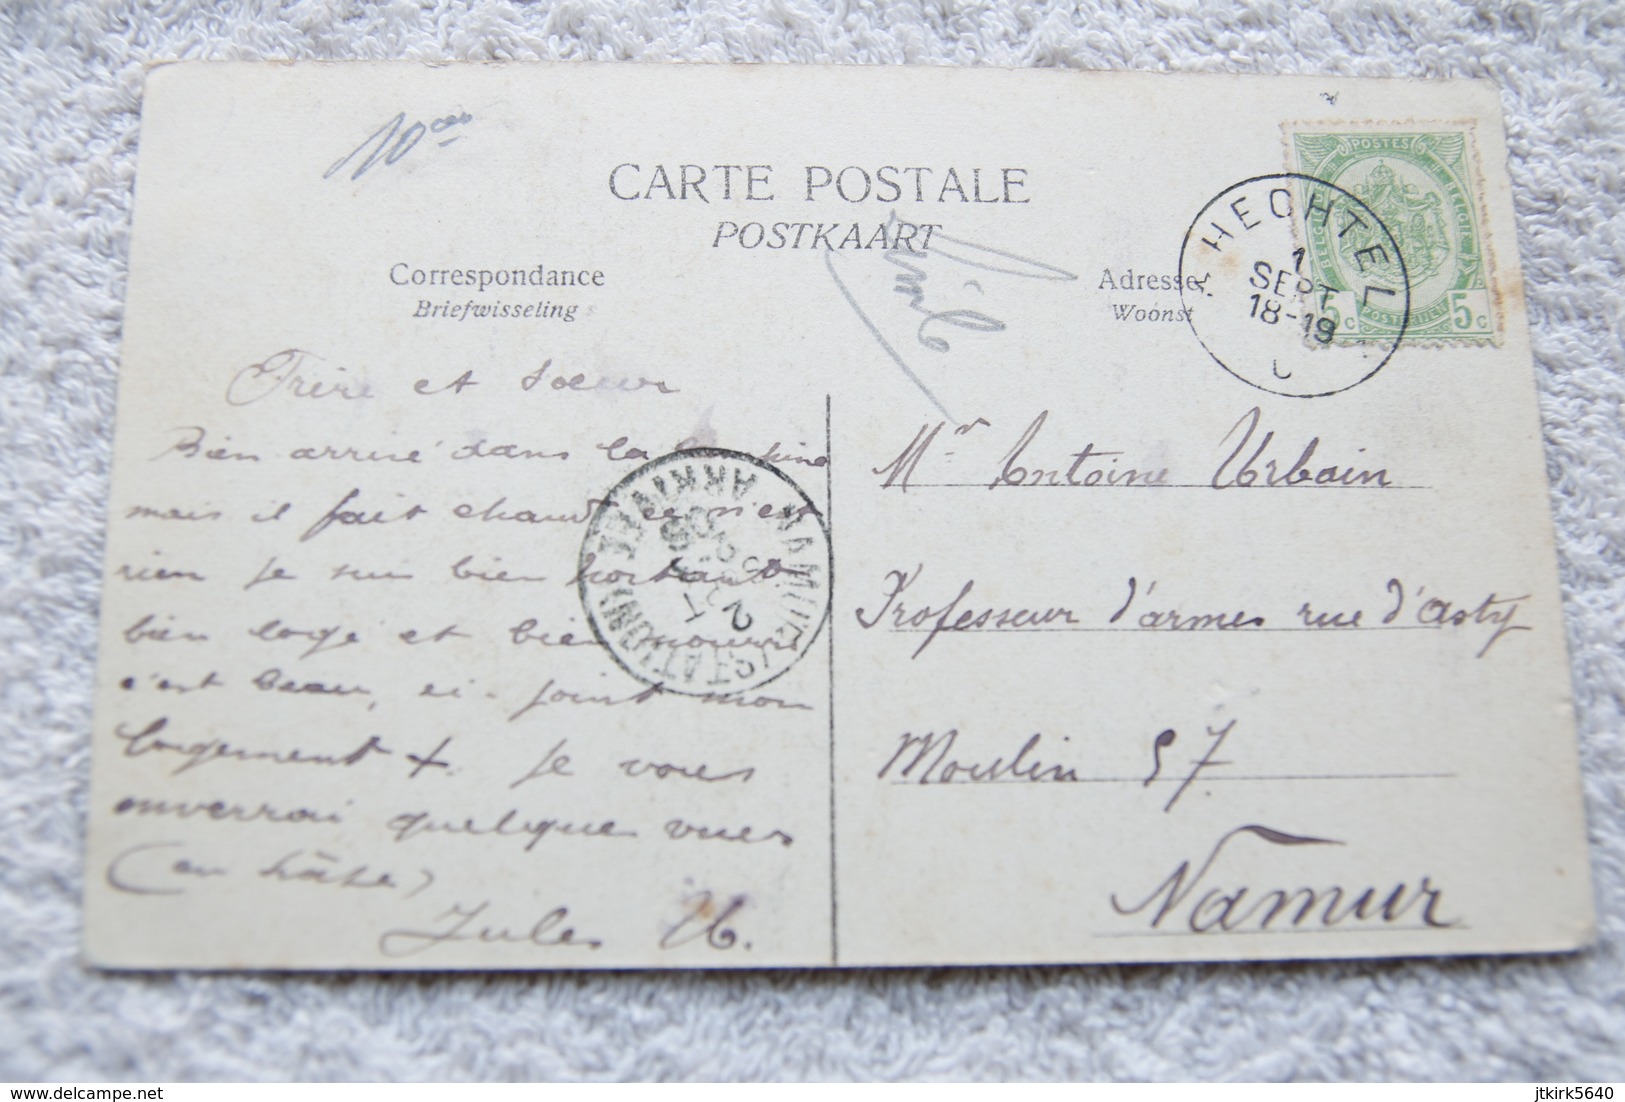 10
CARTE POSTALE
POSTKAART
Correspondance
Briefwisseling
Adresse
Woonst
HECHTEL
1
SEPT
18-19
POSTES
5c
5c
Frère et soeur
Bien arrivé dans la Campine
mais il fait chaud ce n'est
rien je suis bien portant
bien logé et bien nourri
c'est beau, ci-joint mon
logement + je vous
enverrai quelque vues
(en hâte)
Jules Ub.
NAMUR (STATION)
ARRIVEE
2
SEPT
Mr Antoine Urbain
Professeur d'armes rue d'Asty
Moulin 57
Namur
delcampe.net
jtkirk5640